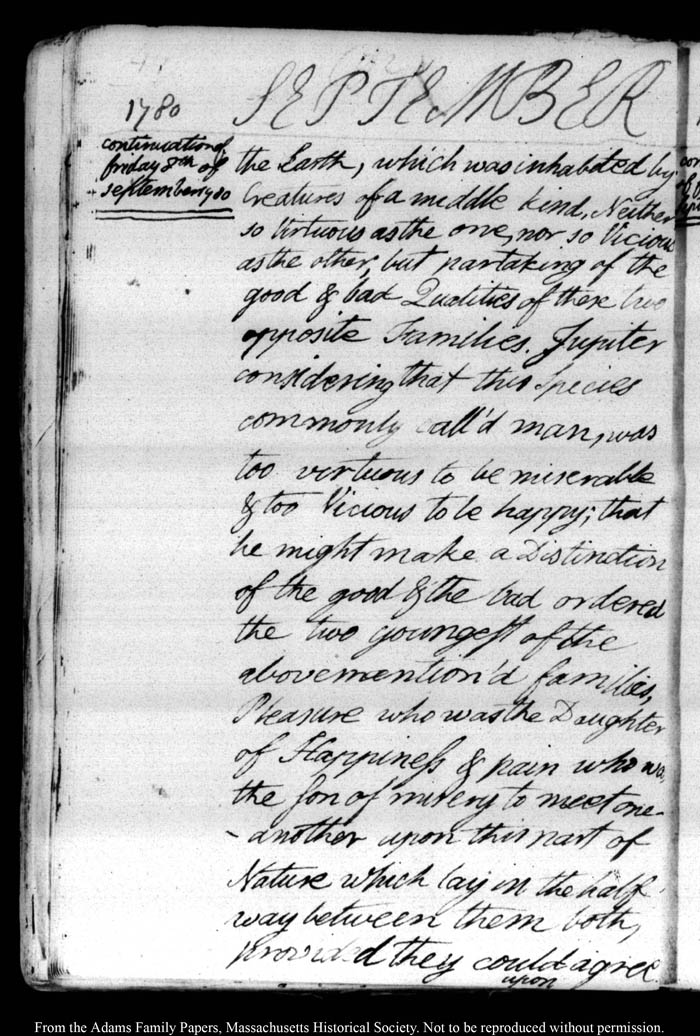 SEPTEMBER
1780
continuation of
friday 8th of
september 1780
the Earth, which was inhabited by
Creatures of a middle kind, Neither
so Virtuous as the one, nor so Vicious
as the other, but partaking of the
good & bad Qualities of these two
opposite Families. Jupiter
considering that this Species
commonly call'd man, was
too virtuous to be miserable
& too Vicious to be happy; that
he might make a Distinction
of the good & the bad ordered
the two youngest of the
abovemention'd families,
Pleasure who was the Daughter
of Happiness & pain who was
the son of misery to meet one-
-another upon this part of
Nature which lay in the half
way between them both,
provided they could agree
upon
From the Adams Family Papers, Massachusetts Historical Society. Not to be reproduced without permission.